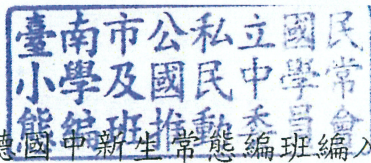 臺南市公私立國民
小學及國民中學常
態編班推動委員會
德國中新生常態編班編入